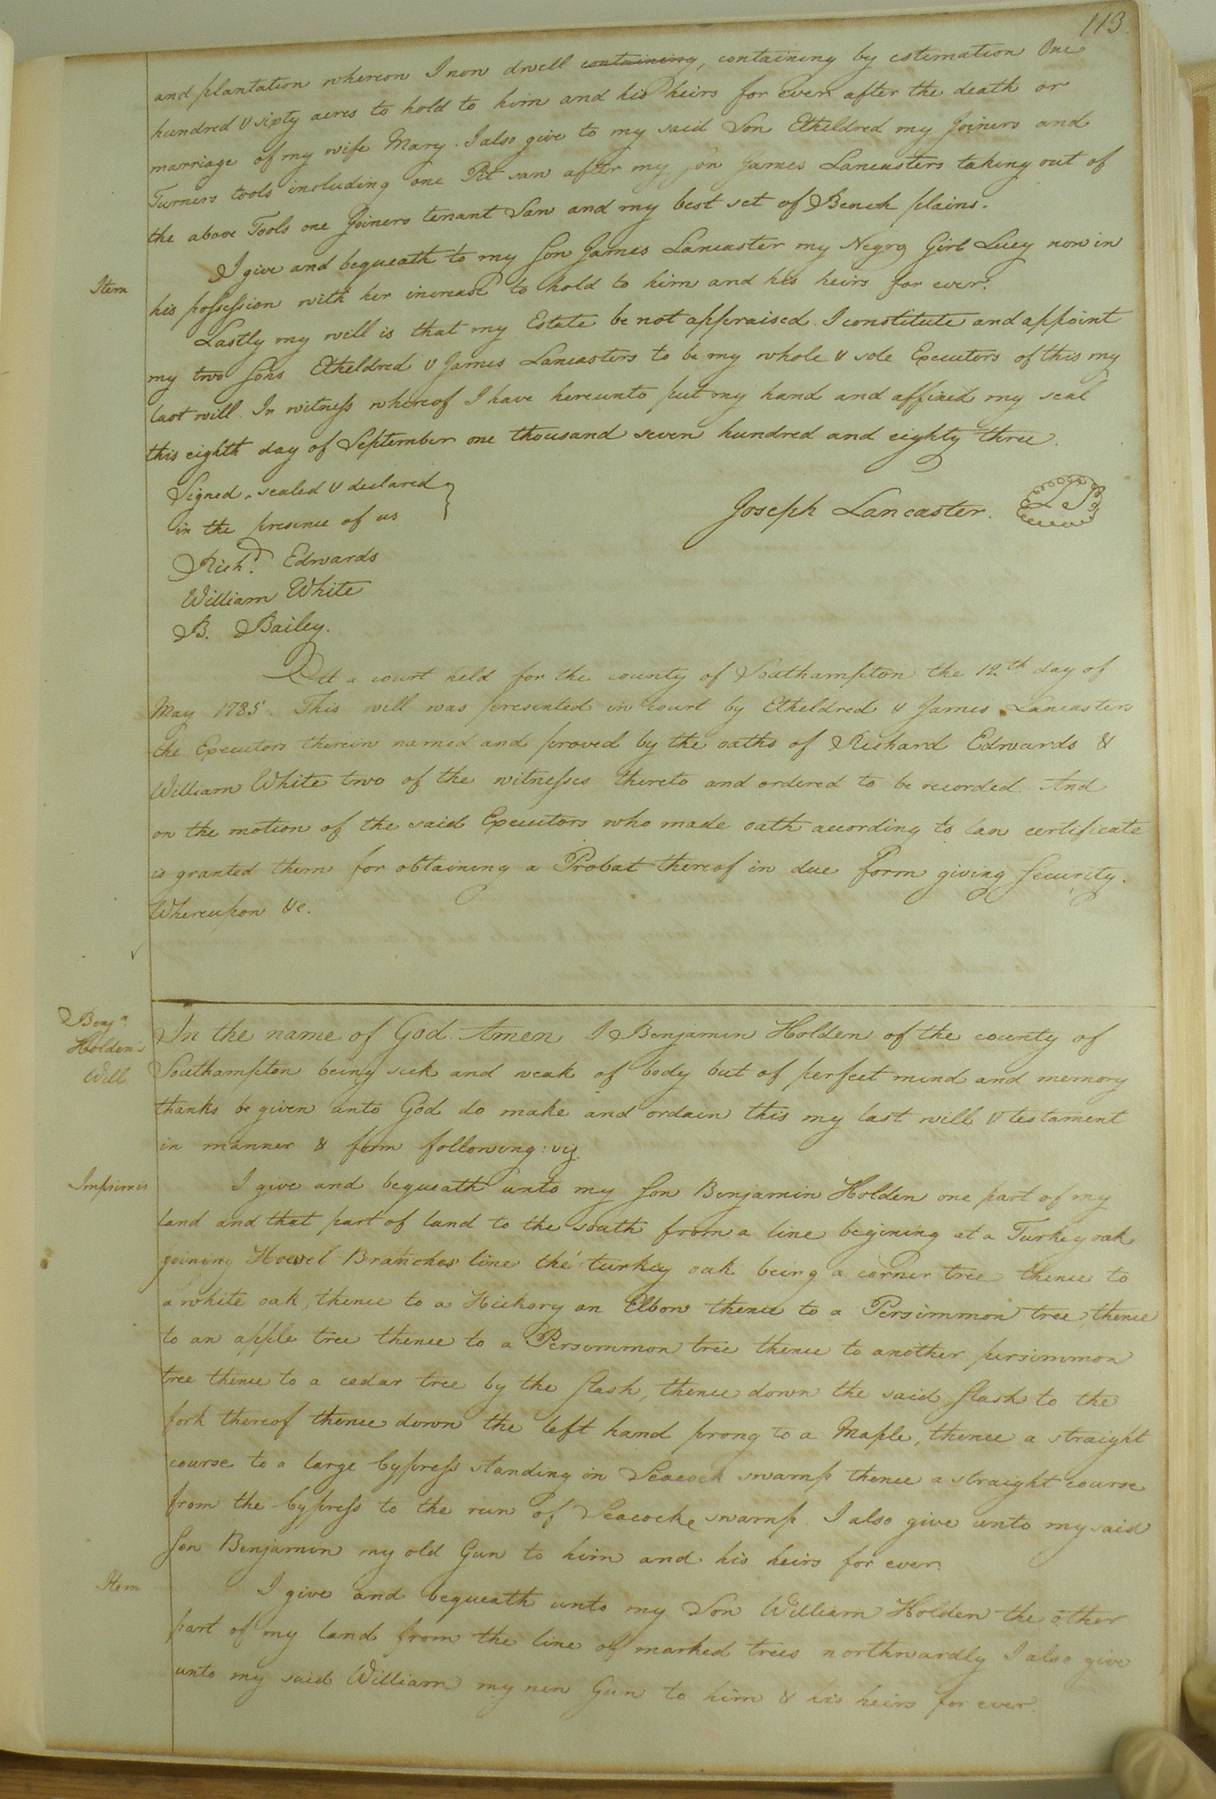 113.
and plantation whereon I now dwell containing, containing by estimation One
hundred & sixty acres to hold to him and his heirs for ever after the death or
marriage of my wife Mary. I also give to my said Son Etheldred my Joiners and
Turners tools including one Pit saw after my son James Lancasters taking out of
the above Tools one Joiners tenant Saw and my best set of Bench plains.
Item I give and bequeath to my Son James Lancaster my Negro Girl Lucy now in
his possession with her increase to hold to him and his heirs for ever.
Lastly my will is that my Estate be not appraised. I constitute and appoint
my two Sons Etheldred & James Lancasters to be my whole & sole Executors of this my
last will. In witness whereof I have hereunto put my hand and affixed my seal
this eighth day of September one thousand seven hundred and eighty three.
Signed, sealed & declared
in the presence of us
Joseph Lancaster. LS
Richd. Edwards
William White
B. Bailey.
At a court held for the county of Southampton the 12th day of
May 1785. This will was presented in court by Etheldred & James Lancasters
the Executors therein named and proved by the oaths of Richard Edwards &
William White two of the witnesses thereto and ordered to be recorded. And
on the motion of the said Executors who made oath according to law certificate
is granted them for obtaining a Probat thereof in due form giving Security.
Whereupon &c.
Benja.
Holden's
Will
In the name of God Amen I Benjamin Holden of the county of
Southampton being sick and weak of body but of perfect mind and memory
thanks be given unto God do make and ordain this my last will & testament
in manner & form following: viz
Imprimis I give and bequeath unto my Son Benjamin Holden one part of my
land and that part of land to the south from a line begining at a Turkey oak
joining Howel Branches line the turkey oak being a corner tree thence to
a white oak, thence to a Hickory an Elbow thence to a Persimmon tree thence
to an apple tree thence to a Persimmon tree thence to another persimmon
tree thence to a cedar tree by the slash, thence down the said slash to the
fork thereof thence down the left hand prong to a Maple, thence a straight
course to a large Cypress standing in Seacock swamp thence a straight course
from the Cypress to the run of Seacocke swamp. I also give unto my said
Son Benjamin my old Gun to him and his heirs for ever.
Item I give and bequeath unto my Son William Holden the other
part of my land from the line of marked trees northwardly I also give
unto my said William my new Gun to him & his heirs for ever.